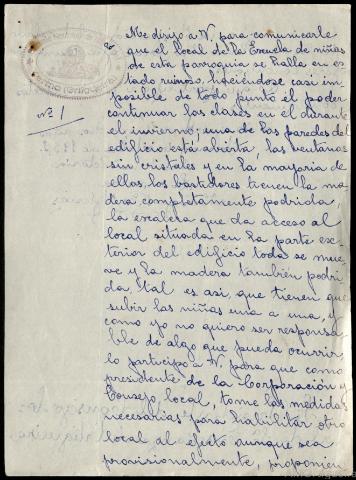 Me dirijo a V. para comunicarle
que el local de la Escuela de niñas
de esta parroquia se halla en es-
tado ruinoso, haciéndose casi im-
posible de todo punto el poder
continuar las clases en él durante
el invierno; una de las paredes del
edificio está abierta, las ventanas
sin cristales y en la mayoria de
ellas los bastidores tienen la ma-
dera completamente podrida,
la escalera que da acceso al
local situada en la parte ex-
terior del edificio toda se mue-
ve y la madera también podri-
da, tal es asi, que tienen que
subir las niñas una a una, y
como yo no quiero ser responsa-
ble de algo que pueda ocurrir,
lo participo a V. para que como
presidente de la Corporación y
Consejo local, tome las medidas
necesarias para habilitar otro
local al efecto aunque sea
provisionalmente, proponien
nº 1